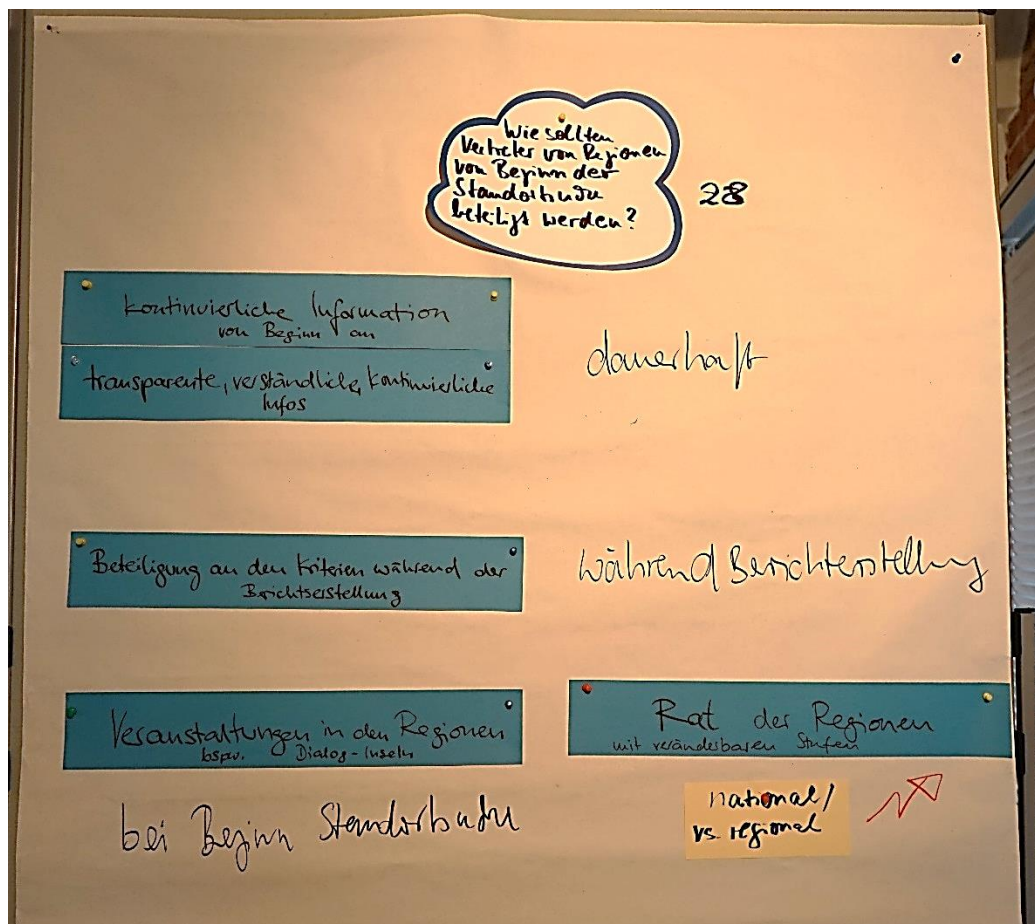 Wie sollten
Vertreter von Regionen
von Beginn der
Standortsuche
beteiligt werden?
28
kontinuierliche Information
von Beginn an
dauerhaft
transparente, verständliche, kontinuierliche
Infos
Beteiligung an den Kriterien während der
Berichtserstellung
während Berichterstellung
Veranstaltungen in den Regionen
bspw. Dialog-Inseln
bei Beginn Standortsuche
Rat der Regionen
mit veränderbaren Stufen
national/
vs. regional